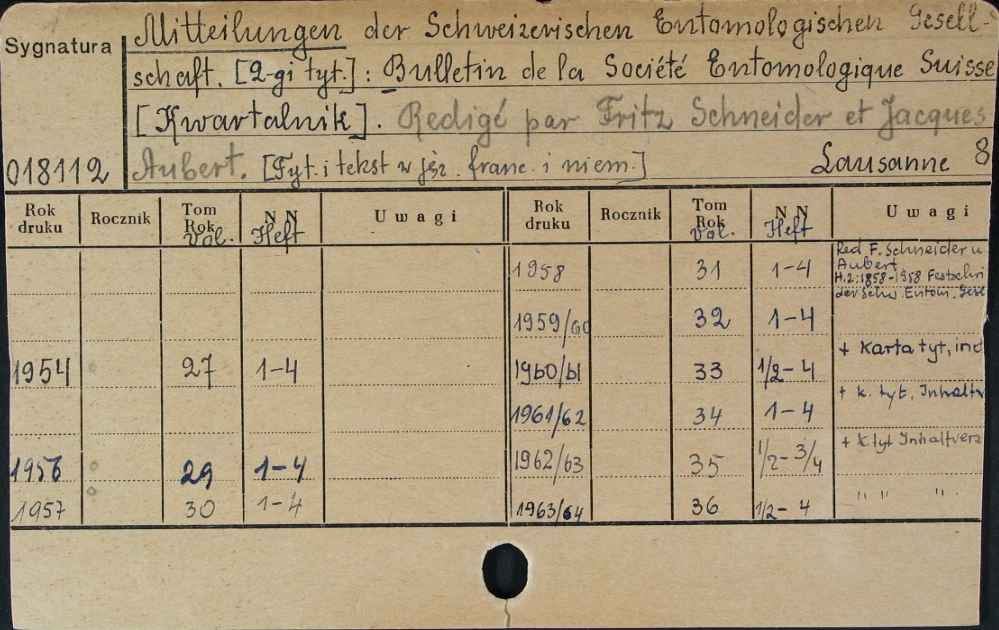 Mitteilungen der Schweizerischen Entomologischen Gesell-
Sygnatura
schaft. [2-gi tyt.]: Bulletin de la Société Entomologique Suisse
[Kwartalnik]. Redigé par Fritz Schneider et Jacques
018112 Aubert. [Tyt. i tekst w jęz. franc. i niem.] Lausanne 8
Rok druku Rocznik Tom Rok Vol. NN Heft Uwagi Rok druku Rocznik Tom Rok Vol. NN Heft Uwagi
1958 31 1-4 Red F. Schneider u
Aubert
H.2:1858-1958 Festschri
der Schw. Entom. Gese
1959/60 32 1-4
1954 27 1-4 1960/61 33 1/2-4 + Karta tyt, ind
1961/62 34 1-4 + k. tyt, Inhaltv
1956 29 1-4 1962/63 35 1/2-3/4 + k tyt Inhaltverz
1957 30 1-4 1963/64 36 1/2-4 " " " .